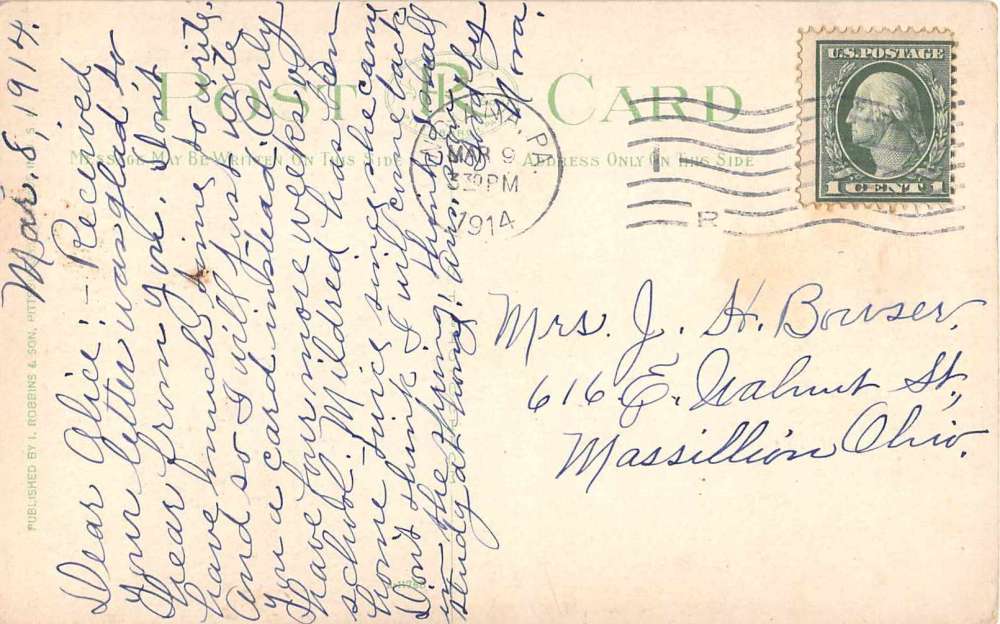 POST CARD
MESSAGE MAY BE WRITTEN ON THIS SIDE
ADDRESS ONLY ON THIS SIDE
PUBLISHED BY I. ROBBINS & SON, PITTS
U.S. POSTAGE
1 CENT 1
PA.
MAR 9
330PM
1914
R
Mar. 8, 1914.
Dear Alice: - Received
Your letter was glad to
hear from you. Don't
have much time to write
And so I will just write
You a card instead. Only
have four more weeks of
school. Mildred has been
home twice since she came
Don't think I will come back
in the spring, think I shall
study at home. Ans. soon by
Nora.
Mrs. J. H. Bowser,
616 E. Walnut St,
Massillion Ohio.